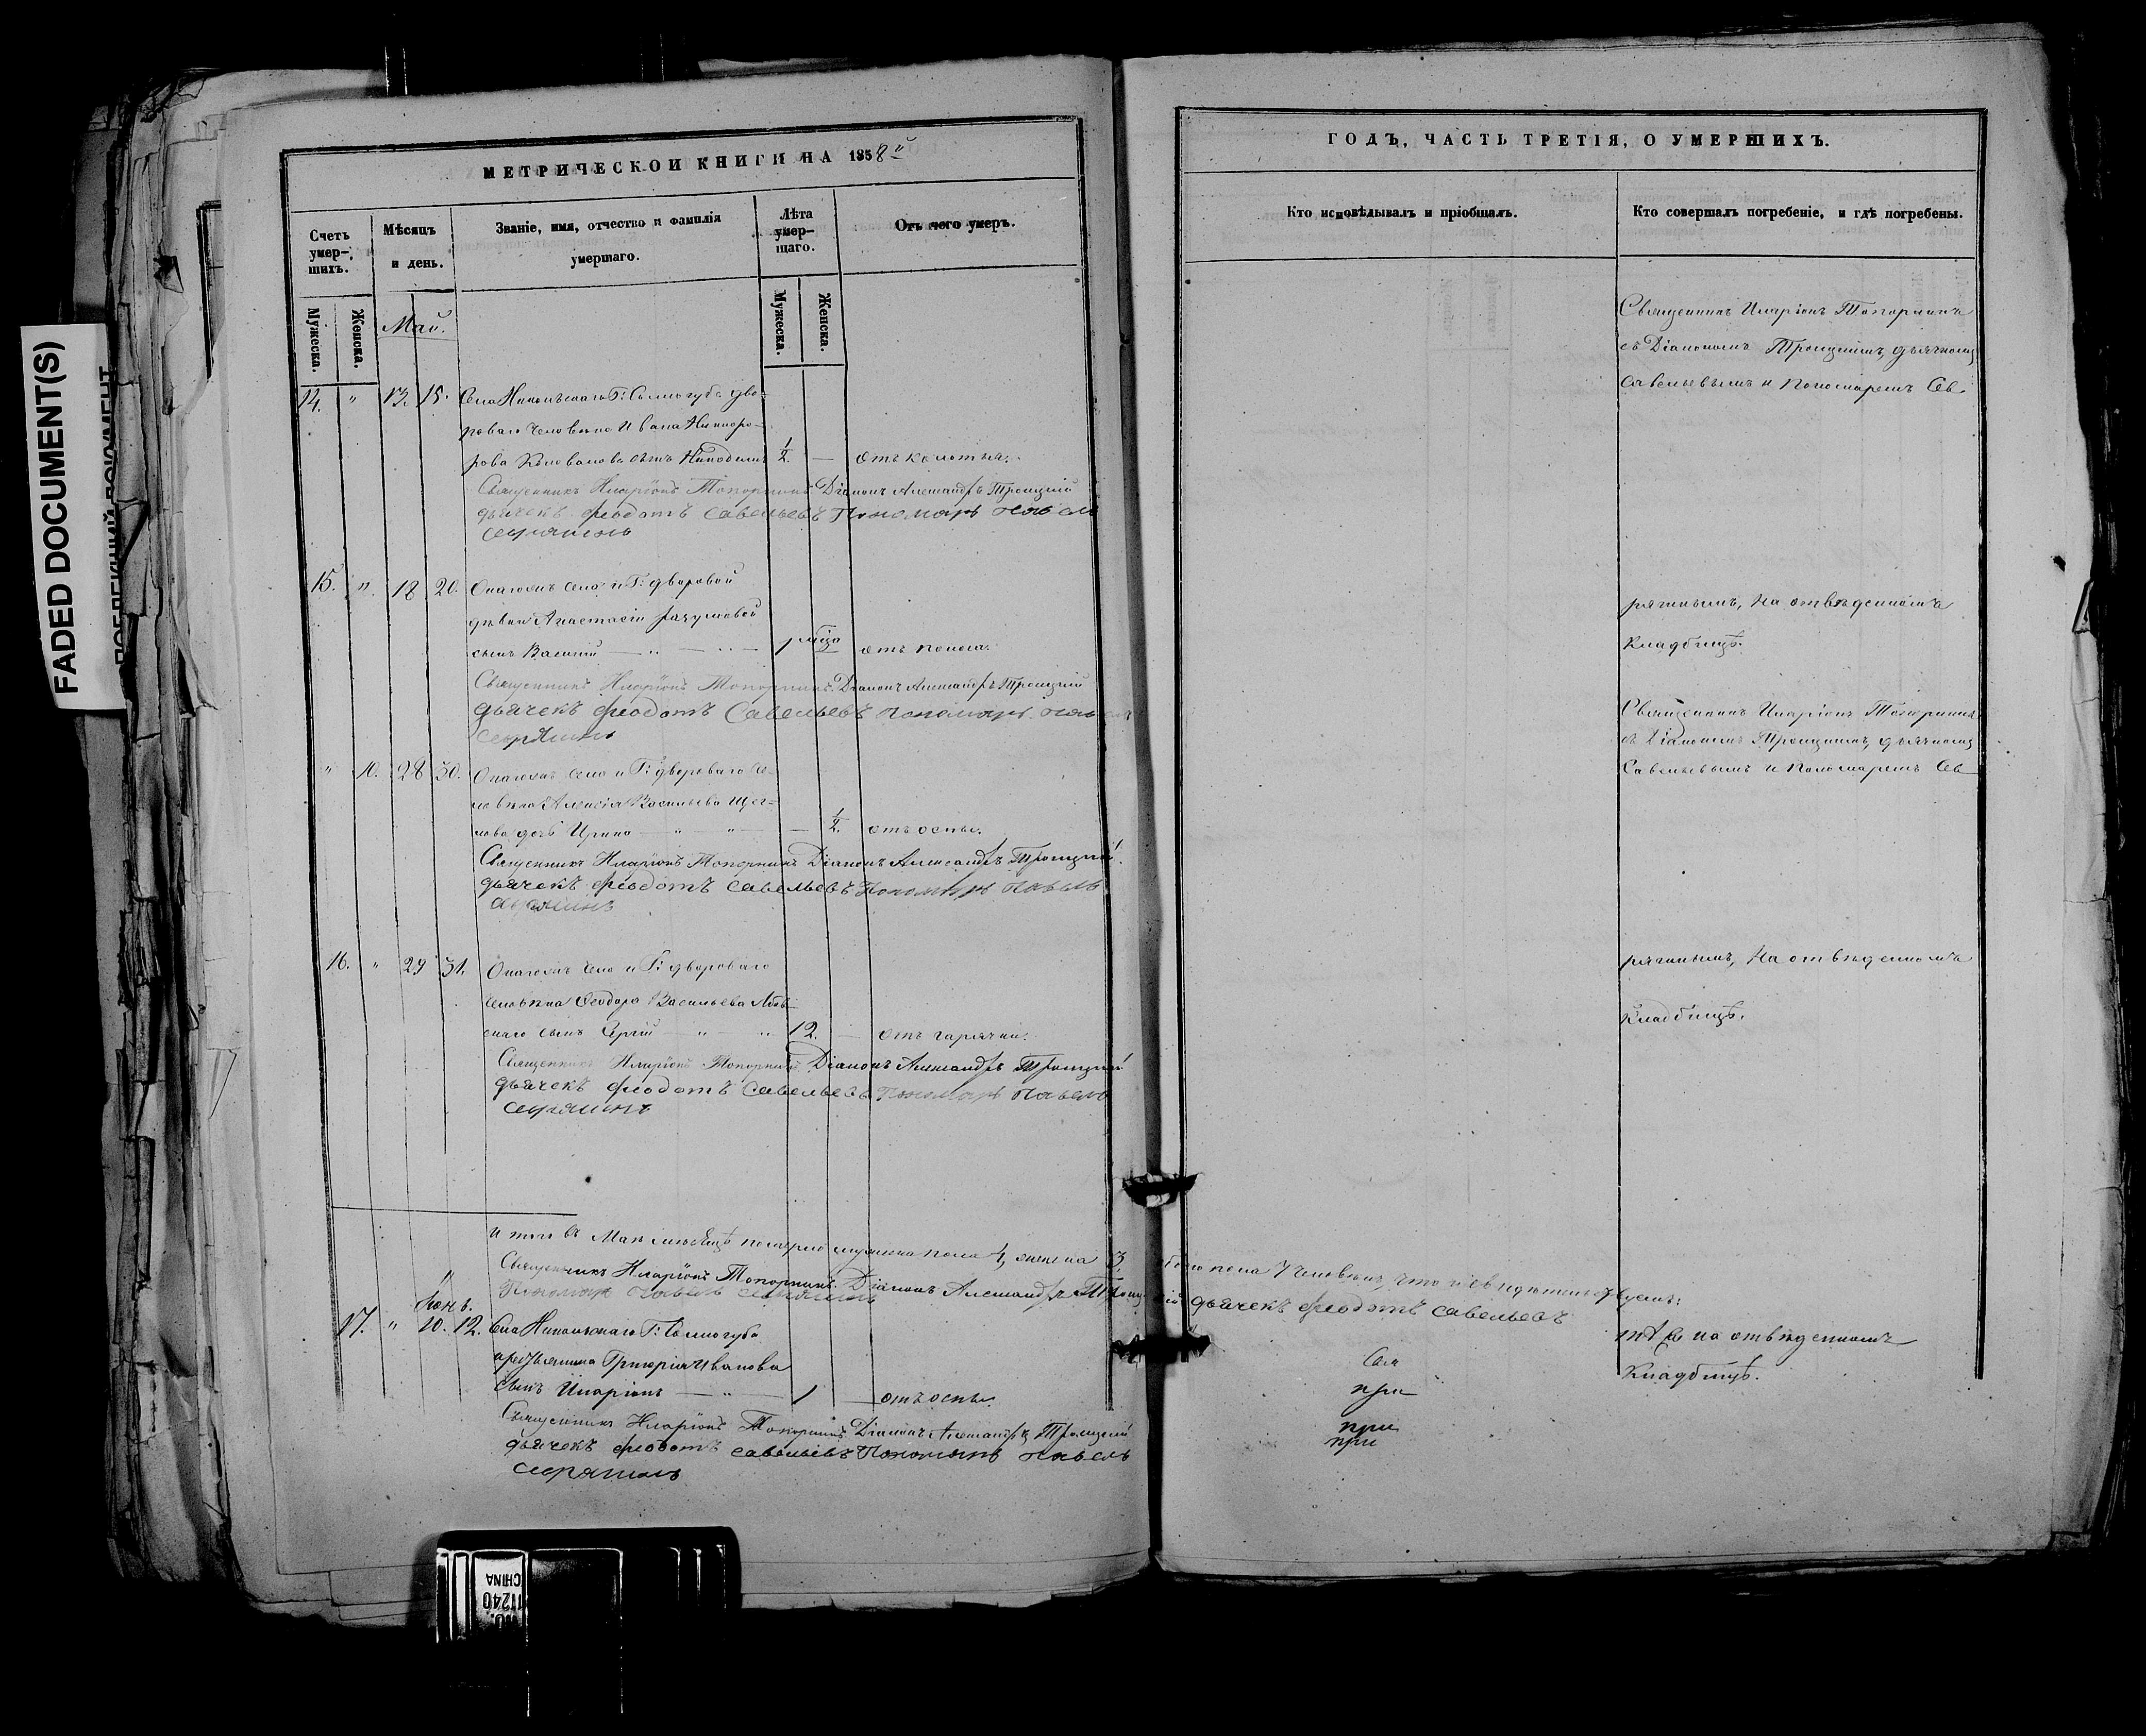 МЕТРИЧЕСКОЙ КНИГИ НА 1858й
Счетъ умер-шихъ.
Мѣсяцъ и день.
Званіе, имя, отчество и фамилія умершаго.
Лѣта умер-шаго.
Отъ чего умеръ.
Мужеска.
Женска.
Мужеска.
Женска.
Май.
14. " 13. 15. Села Никольскаго Г: Сѣмогуба дво-
роваго человѣка Ивана Никифо-
рова сынъ Никодимъ 1/2. — отъ колотья.
Священникъ Иларіонъ Топорнинъ Діаконъ Александръ Троицкій
дьячекъ Феодотъ Савельевъ Пономарь Павелъ
Серякинъ
15. " 18 20. Онагожъ села и Г: дворовой
дѣвки Анастасіи Разумовой
сынъ Василій 1 мѣца отъ поноса.
Священникъ Иларіонъ Топорнинъ Діаконъ Александръ Троицкій
дьячекъ Феодотъ Савельевъ Пономарь Павелъ
" 10. 28 30. Онагожъ села и Г: двороваго че-
ловѣка Алексія Васильева Щег-
лова дочь Ирина — " — " — 1/2. отъ оспы.
Священникъ Иларіонъ Топорнинъ Діаконъ Александръ Троицкій
дьячекъ Феодотъ Савельевъ Пономарь Павелъ
16. " 29 31. Онагожъ села и Г: двороваго
человѣка Феодора Васильева
сынъ Сергій — " — " 12. — отъ горячки.
Священникъ Иларіонъ Топорнинъ Діаконъ Александръ Троицкій
дьячекъ Феодотъ Савельевъ Пономарь Павелъ
Итого въ Маѣ мѣсяцѣ померло мужеска пола 4, женска 3,
Священникъ Иларіонъ Топорнинъ Діаконъ Александръ Троицкій
Пономарь Павелъ
Іюнь.
17. " 10. 12. Села Никольскаго Г: Сѣмогуба
крестьянина Григорія Иванова
сынъ Иларіонъ — " — 1 отъ оспы.
Священникъ Иларіонъ Топорнинъ Діаконъ Александръ Троицкій
дьячекъ Феодотъ Савельевъ Пономарь Павелъ
Серякинъ
ГОДЪ, ЧАСТЬ ТРЕТІЯ, О УМЕРШИХЪ.
Кто исповѣдывалъ и пріобщалъ.
Кто совершалъ погребеніе, и гдѣ погребены.
Священникъ Иларіонъ Топорнинъ
съ Діакономъ Троицкимъ, дьячкомъ
Савельевымъ и Пономаремъ Се
рякинымъ, на отвѣденномъ
кладбищѣ.
Священникъ Иларіонъ Топорнинъ
съ Діакономъ Троицкимъ, дьячкомъ
Савельевымъ и Пономаремъ Се
рякинымъ, на отвѣденномъ
кладбищѣ.
пола 7 человѣкъ, что и свидѣтельствуемъ:
дьячекъ Феодотъ Савельевъ
на отвѣденномъ
кладбищѣ.
при
при
при
FADED DOCUMENT(S)